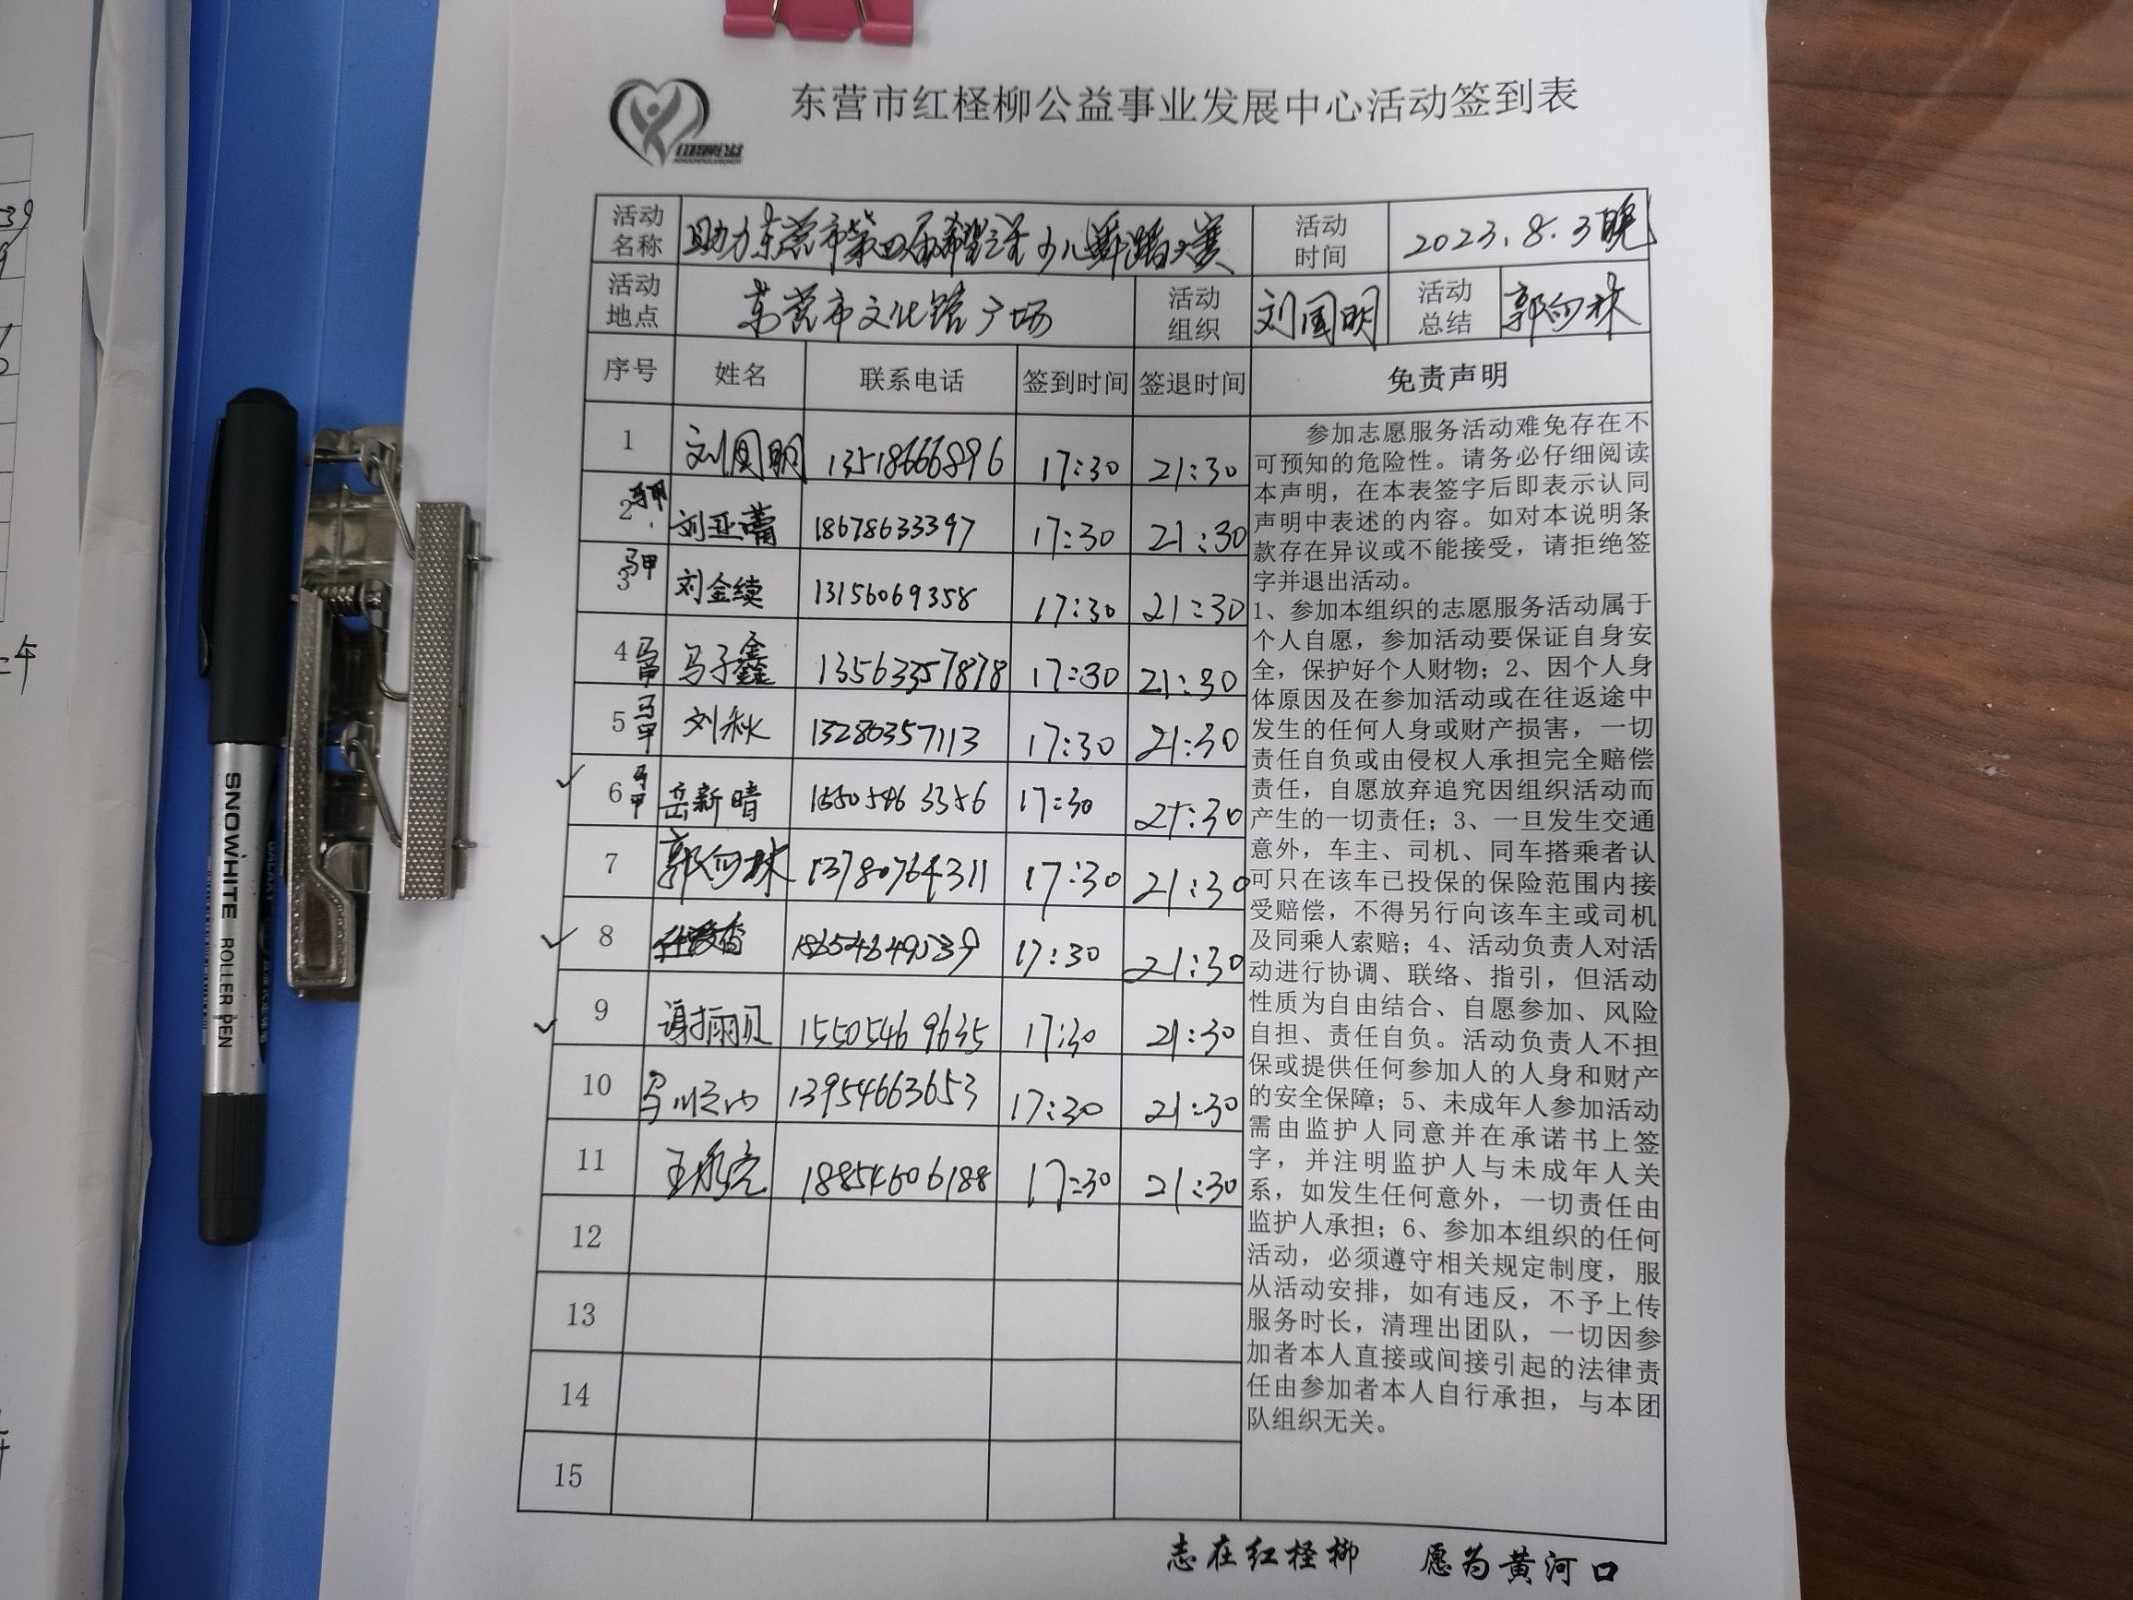 东营市红柽柳公益事业发展中心活动签到表
活动名称 助力东营市第四届希望之星少儿舞蹈大赛 活动时间 2023.8.3晚
活动地点 东营市文化馆广场 活动组织 刘国明 活动总结 郭向林
序号 姓名 联系电话 签到时间 签退时间 免责声明
1 刘国明 13518666896 17:30 21:30
2 马甲 刘亚蕾 18678633397 17:30 21:30
3 马甲 刘金续 13156069358 17:30 21:30
4 马甲 马子鑫 13563357878 17:30 21:30
5 马甲 刘秋 13280357113 17:30 21:30
6 马甲 岳新晴 17:30 21:30
7 郭向林 13780764311 17:30 21:30
8 17:30 21:30
9 谢丽贝 15505469635 17:30 21:30
10 13954663653 17:30 21:30
11 18854606188 17:30 21:30
12
13
14
15
参加志愿服务活动难免存在不
可预知的危险性。请务必仔细阅读
本声明，在本表签字后即表示认同
声明中表述的内容。如对本说明条
款存在异议或不能接受，请拒绝签
字并退出活动。
1、参加本组织的志愿服务活动属于
个人自愿，参加活动要保证自身安
全，保护好个人财物；2、因个人身
体原因及在参加活动或在往返途中
发生的任何人身或财产损害，一切
责任自负或由侵权人承担完全赔偿
责任，自愿放弃追究因组织活动而
产生的一切责任；3、一旦发生交通
意外，车主、司机、同车搭乘者认
可只在该车已投保的保险范围内接
受赔偿，不得另行向该车主或司机
及同乘人索赔；4、活动负责人对活
动进行协调、联络、指引，但活动
性质为自由结合、自愿参加、风险
自担、责任自负。活动负责人不担
保或提供任何参加人的人身和财产
的安全保障；5、未成年人参加活动
需由监护人同意并在承诺书上签
字，并注明监护人与未成年人关
系，如发生任何意外，一切责任由
监护人承担；6、参加本组织的任何
活动，必须遵守相关规定制度，服
从活动安排，如有违反，不予上传
服务时长，清理出团队，一切因参
加者本人直接或间接引起的法律责
任由参加者本人自行承担，与本团
队组织无关。
志在红柽柳 愿为黄河口
SNOWHITE ROLLER PEN